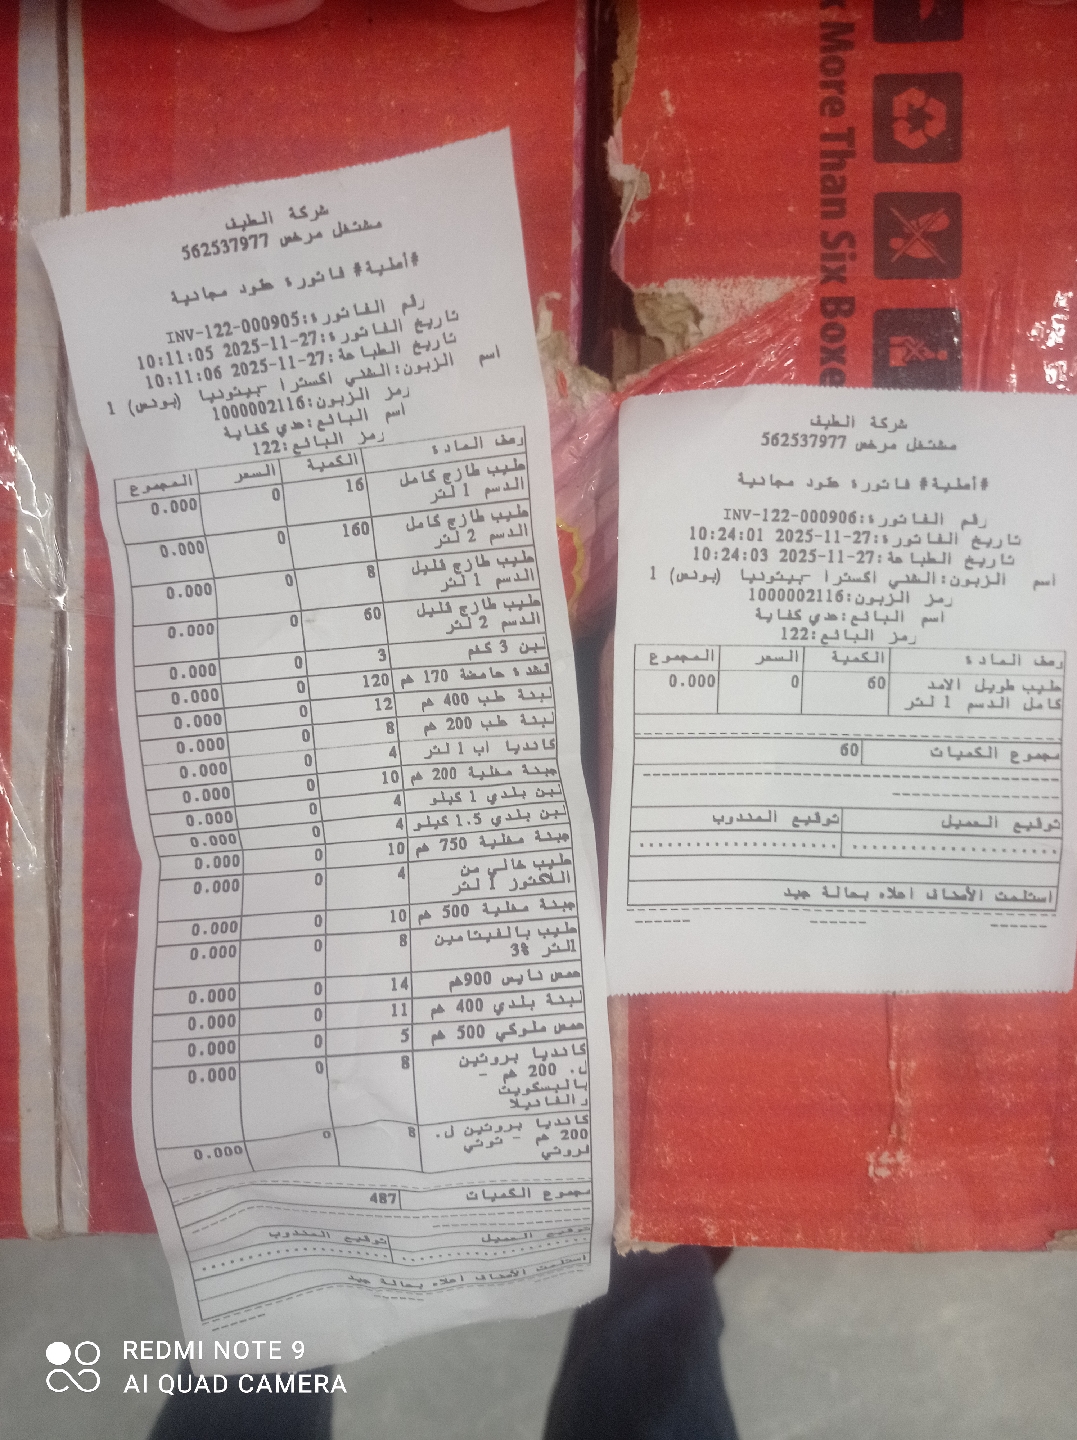 شركة الطيف
مشتغل مرخص 562537977
#أصلية# فاتورة طود مجانية
رقم الفاتورة:INV-122-000905
تاريخ الفاتورة:27-11-2025 10:11:05
تاريخ الطباعة:27-11-2025 10:11:06
اسم الزبون:الشني اكسترا -بيتونيا (بونص) 1
رمز الزبون:1000002116
اسم البائع:عدي كفاية
رمز البائع:122
وصف المادة الكمية السعر المجموع
حليب طازج كامل 16 0 0.000
الدسم 1 لتر
حليب طازج كامل 160 0 0.000
الدسم 2 لتر
حليب طازج قليل 8 0 0.000
الدسم 1 لتر
حليب طازج قليل 60 0 0.000
الدسم 2 لتر
لبن 3 كغم 3 0 0.000
قشدة حامضة 170 غم 120 0 0.000
لبنة علب 400 غم 12 0 0.000
لبنة علب 200 غم 8 0 0.000
كانديا اب 1 لتر 4 0 0.000
جبنة مغلية 200 غم 10 0 0.000
لبن بلدي 1 كيلو 4 0 0.000
لبن بلدي 1.5 كيلو 4 0 0.000
جبنة مغلية 750 غم 10 0 0.000
حليب خالي من 4 0 0.000
اللاكتوز 1 لتر
جبنة مغلية 500 غم 10 0 0.000
حليب بالفيتامين 8 0 0.000
1لتر 3%
حمص نايس 900غم 14 0 0.000
لبنة بلدي 400 غم 11 0 0.000
حمص ملوكي 500 غم 5 0 0.000
كانديا بروتين 8 0 0.000
ل. 200 غم -
بالبسكويت
والفانيلا
كانديا بروتين ل. 8 0 0.000
200 غم - توتي
فروتي
مجموع الكميات 487
توقيع العميل توقيع المندوب
استلمت الأصناف اعلاه بحالة جيد
شركة الطيف
مشتغل مرخص 562537977
#أصلية# فاتورة طود مجانية
رقم الفاتورة:INV-122-000906
تاريخ الفاتورة:27-11-2025 10:24:01
تاريخ الطباعة:27-11-2025 10:24:03
اسم الزبون:الشني اكسترا -بيتونيا (بونص) 1
رمز الزبون:1000002116
اسم البائع:عدي كفاية
رمز البائع:122
وصف المادة الكمية السعر المجموع
حليب طويل الامد 60 0 0.000
كامل الدسم 1 لتر
مجموع الكميات 60
توقيع العميل توقيع المندوب
استلمت الأصناف اعلاه بحالة جيد
More Than Six Boxe
REDMI NOTE 9
AI QUAD CAMERA